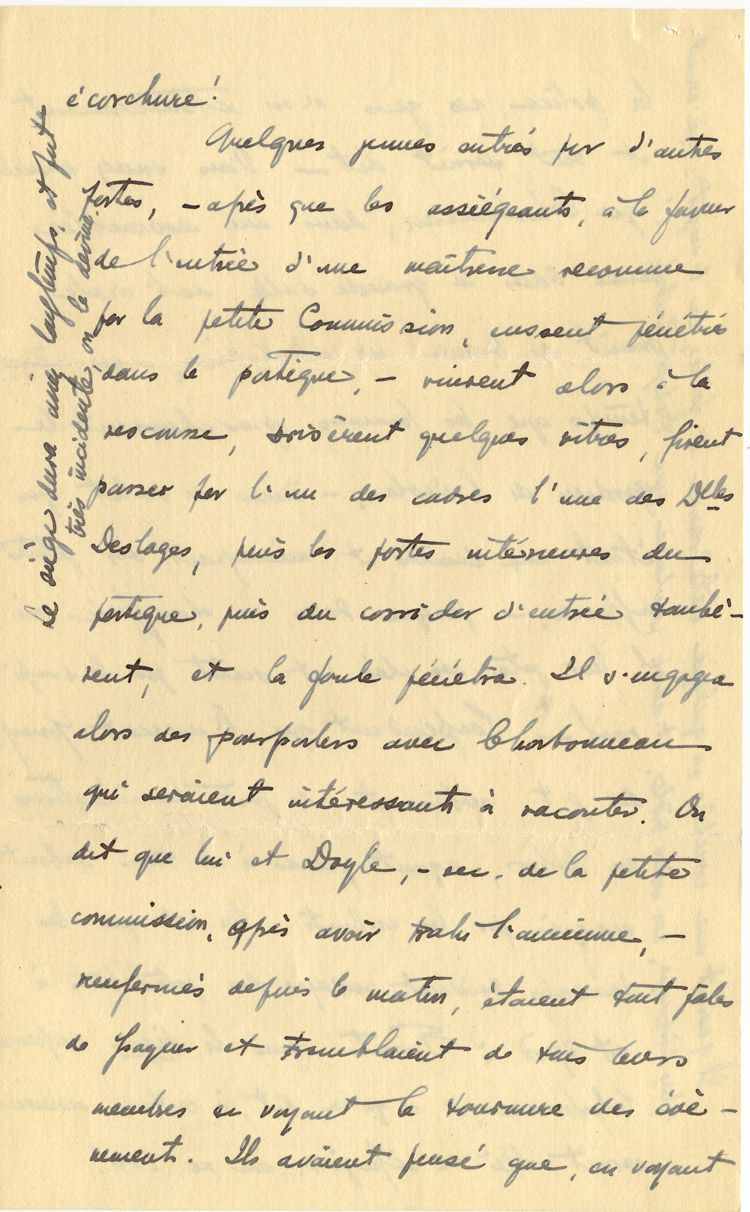 écorchure!
Quelques jeunes entrés par d'autres
portes, – après que les assiégeants, à la faveur
de l'entrée d'une maîtresse reconnue
par la petite Commission, eussent pénétré
dans le portique, – vinrent alors à la
rescousse, brisèrent quelques vitres, firent
passer par l'un des cadres l'une des Dlles
Desloges, puis les portes intérieures du
portique, puis du corridor d'entrée tombè-
rent, et la foule pénétra. Il s'engagea
alors des pourparlers avec Charbonneau
qui seraient intéressants à raconter. On
dit que lui et Doyle, – sec. de la petite
commission, après avoir trahi l'ancienne, –
renfermés depuis le matin, étaient tout pâles
de frayeur et tremblaient de tous leurs
membres en voyant la tournure des évè-
nements. Ils avaient pensé que, en voyant
Le siège dura assez longtemps, et fut
très incidenté, on le devine.